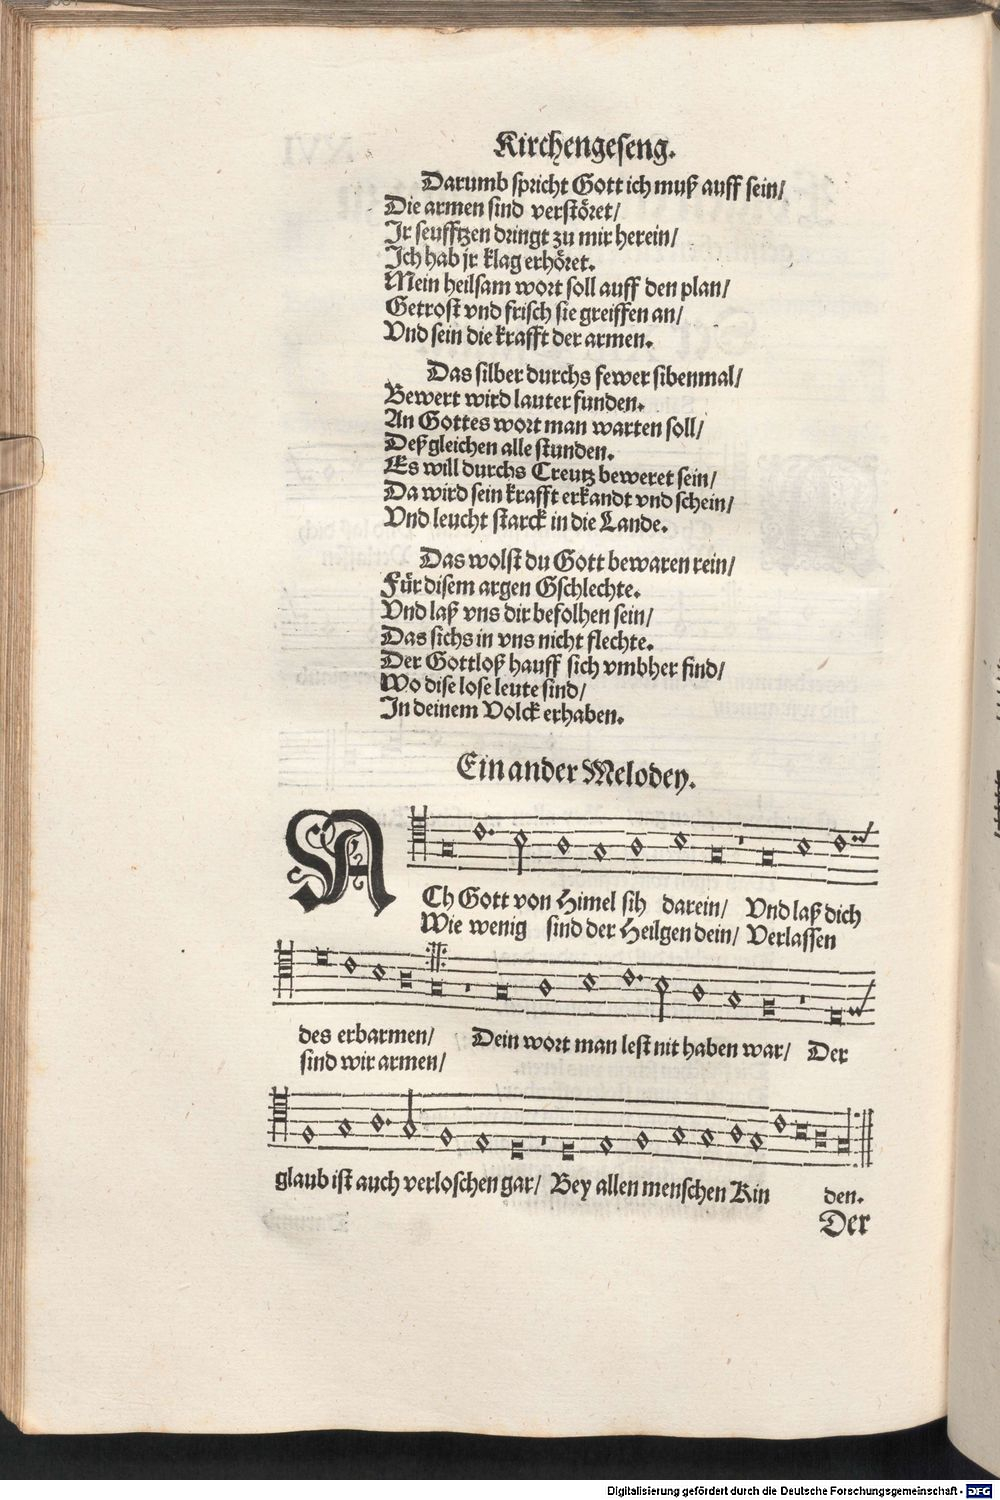 Kirchengeseng.
Darumb spricht Gott ich muß auff sein/
Die armen sind verstöret/
Ir seufftzen dringt zu mir herein/
Ich hab jr klag erhöret.
Mein heilsam wort soll auff den plan/
Getrost vnd frisch sie greiffen an/
Vnd sein die krafft der armen.
Das silber durchs fewer sibenmal/
Bewert wird lauter funden.
An Gottes wort man warten soll/
Deßgleichen alle stunden.
Es will durchs Creutz beweret sein/
Da wird sein krafft erkandt vnd schein/
Vnd leucht starck in die Lande.
Das wolst du Gott bewaren rein/
Für disem argen Gschlechte.
Vnd laß vns dir befolhen sein/
Das sichs in vns nicht flechte.
Der Gottloß hauff sich vmbher find/
Wo dise lose leute sind/
In deinem Volck erhaben.
Ein ander Melodey.
ACh Gott von Himel sih darein/ Vnd laß dich
Wie wenig sind der Heilgen dein/ Verlassen
des erbarmen/ Dein wort man lest nit haben war/ Der
sind wir armen/
glaub ist auch verloschen gar/ Bey allen menschen Kin den.
Der
Digitalisierung gefördert durch die Deutsche Forschungsgemeinschaft - DFG